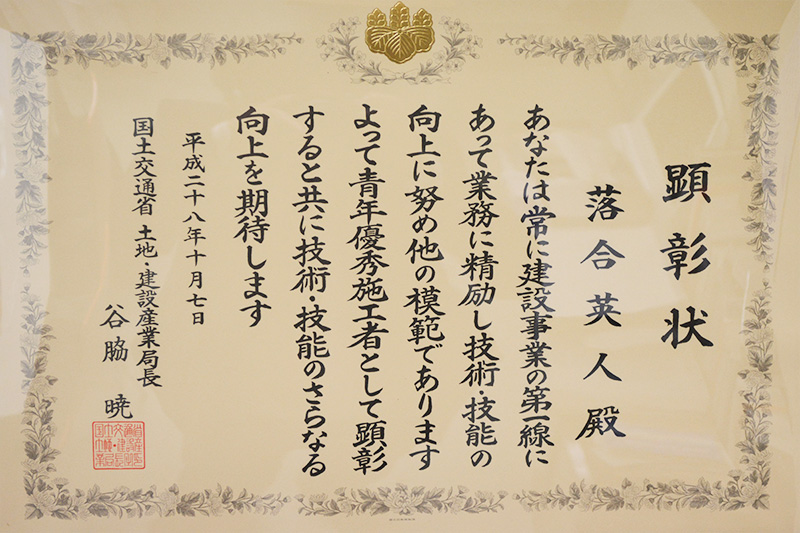 顕彰状
落合英人殿
あなたは常に建設事業の第一線に
あって業務に精励し技術・技能の
向上に努め他の模範であります
よって青年優秀施工者として顕彰
すると共に技術・技能のさらなる
向上を期待します
平成二十八年十月七日
国土交通省 土地・建設産業局長
谷脇 暁